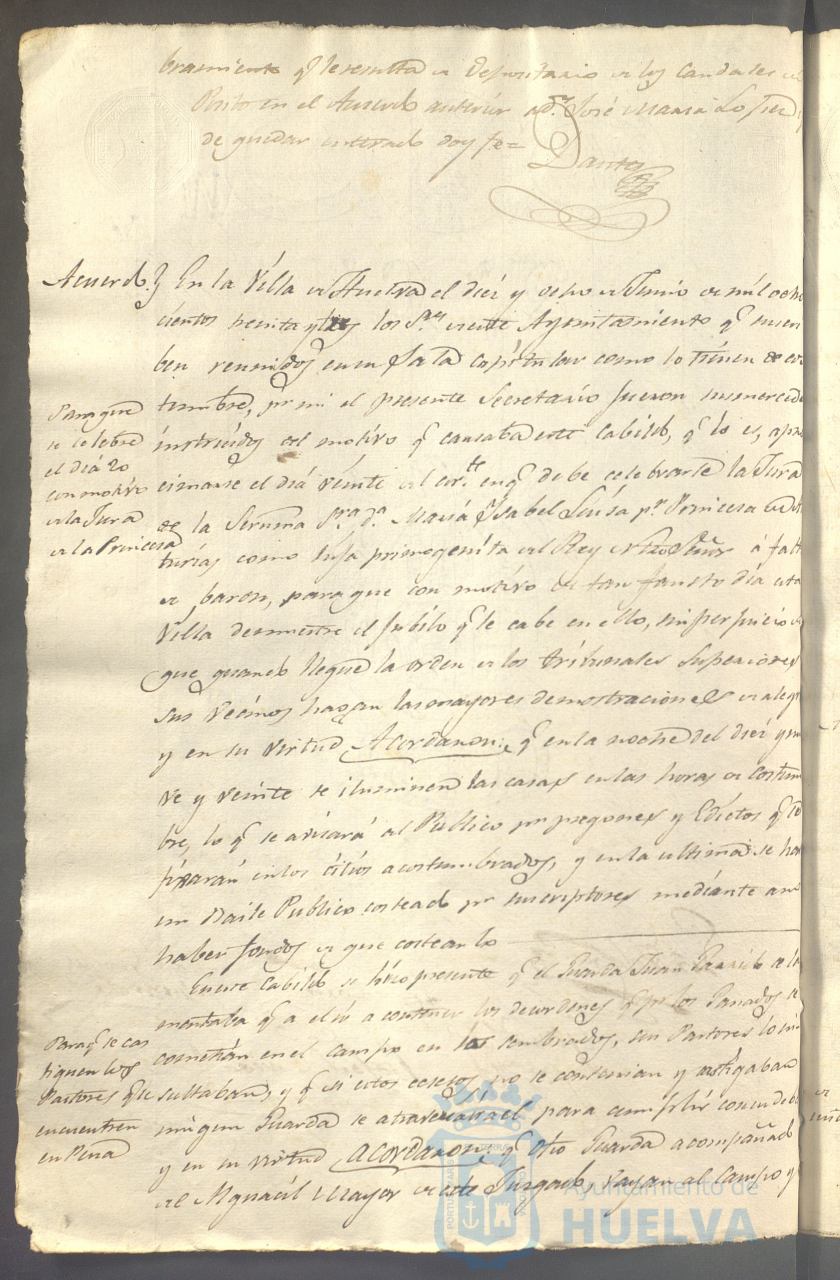 bramiento q.e le resulta de Depositario de los Caudales del
Posito en el Acuerdo anterior a d.n José Maria
de quedar enterado doy fe=
Dantes
Acuerdo.} En la Villa de Huelva el diez y ocho de Junio de mil ocho
cientos treinta y tres los S.res de este Ayuntamiento q.e suscri
ben reunidos en su Sala capitular como lo tienen de cos
tumbre, por mi el presente Secretario fueron sus mercedes
instruidos del motivo q.e causaba este Cabildo, q.e lo es, apro
cimarse el dia veinte del cor.te en q.e debe celebrarse la Jura
de la Serenma S.ra d.a Maria Ysabel Luisa p.r Princesa de As
turias como hija primogenita del Rey ntro Señor á falta
de baron, para que con motivo de tan fausto dia esta
Villa demuestre el jubilo q.e le cabe en ello, sin perjuicio de
que quando llegue la orden de los tribunales Superiores
sus vecinos hagan las mayores demostraciones de alegria
y en su virtud Acordaron: q.e en la noche del diez y nue
ve y veinte se iluminen las casas en las horas de costum
bre, lo q.e se avisará al Publico por pregones y Edictos q.e se
fixarán en los sitios acostumbrados, y en la ultima se hará
un Baile Publico costeado por suscriptores mediante a no
haber fondos de que costearlo
Para que
se celebre
el dia 20
con motivo
de la Jura
de la Princesa
En este Cabildo se hizo presente q.e el Guarda Juan se la
mentaba q.e a el ir a contener los decordenes q.e por los Ganados se
cometian en el campo en los sembrados, sus Pastores lo in
sultaban, y q.e si estos ecsesos no se contenian y castigaban
ningun Guarda se atraveria él para cumplir con su deber
y en su virtud acordaron: q.e otro Guarda acompañado
del Alguacil mayor de este Juzgado, vayan al campo y
Para q.e se cas
tiguen los
Pastores q.e se
encuentren
en Pena
Ayuntamiento de
HUELVA